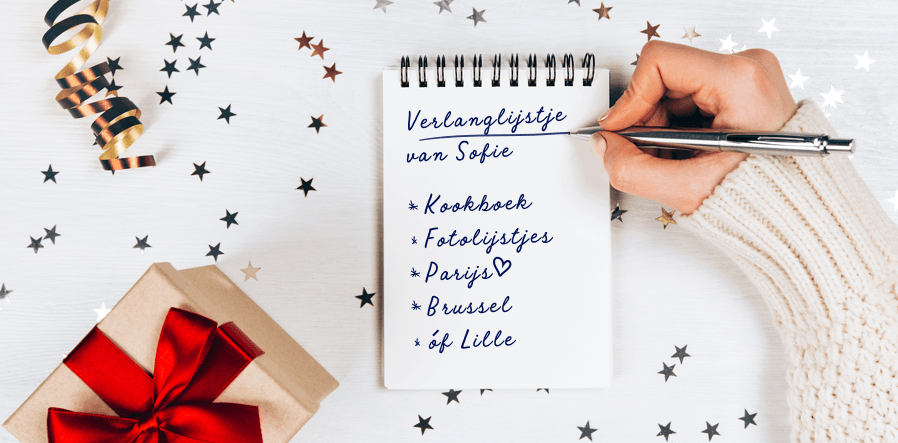 Verlanglijstje
van Sofie
* Kookboek
* Fotolijstjes
* Parijs♡
* Brussel
* óf Lille